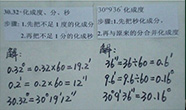 30.32°化成度、分、秒
步骤:1.先把不足1度的化成分
2.再把不足1分的化成秒
解:
0.32°=0.32×60=19.2′
0.2′=0.2×60=12″
30.32=30°19′12″
30°9′36″化成度
步骤:1.先把秒化成分,
2.再与原来的分合并化成度
解:
36″=36÷60=0.6′
9.6′=9.6÷60=0.16°
30°9′36″=30.16°